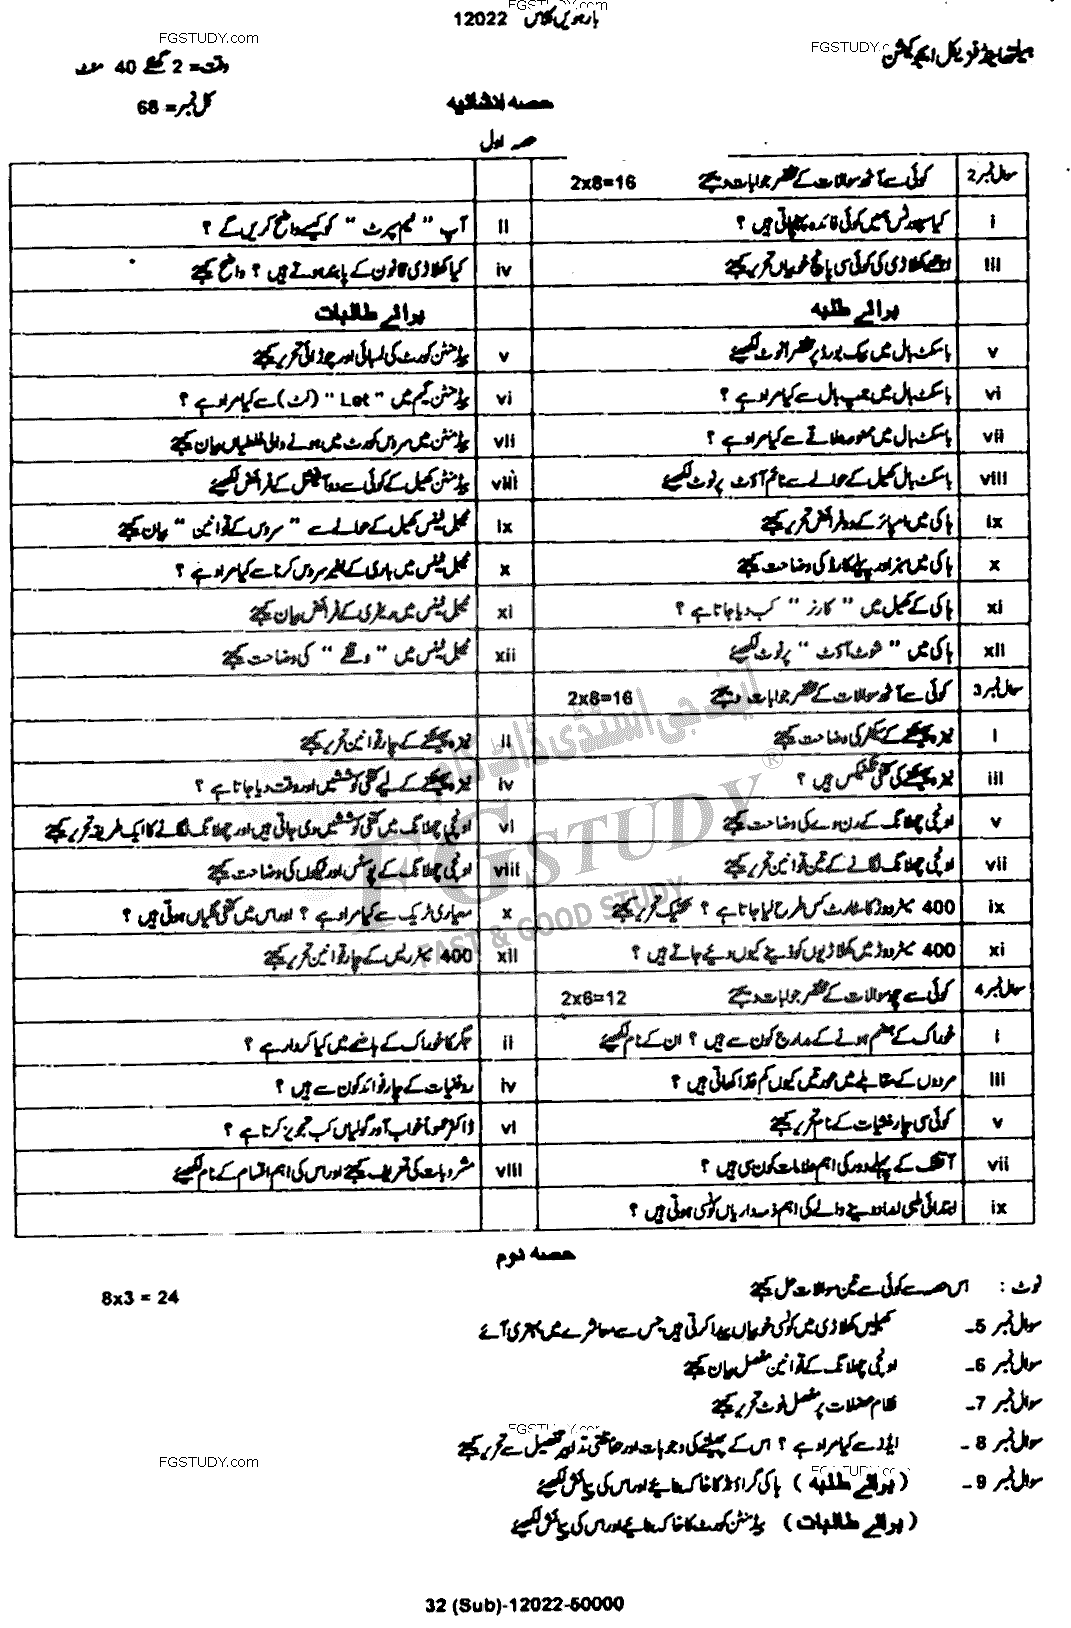 بارھویں کلاس 12022
FGSTUDY.com
FGSTUDY.com
FGSTUDY.com
ہیلتھ اینڈ فزیکل ایجوکیشن
وقت= 2 گھنٹے 40 منٹ
کل نمبر= 68
حصہ انشائیہ
حصہ اول
سوال نمبر 2 کوئی سے آٹھ سوالات کے مختصر جوابات دیجئے 2x8=16
i کیا سپورٹس ہمیں کوئی فائدہ پہنچاتی ہیں ؟
ii آپ " ٹیم سپرٹ " کو کیسے واضح کریں گے ؟
iii اچھے کھلاڑی کی کوئی سی پانچ خوبیاں تحریر کیجئے
iv کیا کھلاڑی قانون کے پابند ہوتے ہیں ؟ واضح کیجئے
برائے طلبہ
برائے طالبات
v باسکٹ بال میں بیک بورڈ پر مختصر نوٹ لکھیئے
v بیڈمنٹن کورٹ کی لمبائی اور چوڑائی تحریر کیجئے
vi باسکٹ بال میں جمپ بال سے کیا مراد ہے ؟
vi بیڈمنٹن گیم میں " Let " (لٹ) سے کیا مراد ہے ؟
vii باسکٹ بال میں ممنوعہ علاقے سے کیا مراد ہے ؟
vii بیڈمنٹن میں سروس کورٹ میں ہونے والی غلطیاں بیان کیجئے
viii باسکٹ بال کھیل کے حوالے سے ٹائم آؤٹ پر نوٹ لکھیئے
viii بیڈمنٹن کھیل کے کوئی سے دو آفیشل کے فرائض لکھیئے
ix ہاکی میں امپائر کے دو فرائض تحریر کیجئے
ix ٹیبل ٹینس کھیل کے حوالے سے " سروس کے قوانین " بیان کیجئے
x ہاکی میں سبز اور پیلے کارڈ کی وضاحت کیجئے
x ٹیبل ٹینس میں باری کے بغیر سروس کرنا سے کیا مراد ہے ؟
xi ہاکی کے کھیل میں " کارنر " کب دیا جاتا ہے ؟
xi ٹیبل ٹینس میں ریفری کے فرائض بیان کیجئے
xii ہاکی میں " شوٹ آؤٹ " پر نوٹ لکھیئے
xii ٹیبل ٹینس میں " وقفے " کی وضاحت کیجئے
سوال نمبر 3 کوئی سے آٹھ سوالات کے مختصر جوابات دیجئے 2x8=16
i نیزہ پھینکنے کے سیکٹر کی وضاحت کیجئے
ii نیزہ پھینکنے کے چار قوانین تحریر کیجئے
iii نیزہ پھینکنے کی کتنی تکنیکس ہیں ؟
iv نیزہ پھینکنے کے لیے کتنی کوششیں اور وقت دیا جاتا ہے ؟
v اونچی چھلانگ کے رن وے کی وضاحت کیجئے
vi اونچی چھلانگ میں کتنی کوششیں دی جاتی ہیں اور چھلانگ لگانے کا ایک طریقہ تحریر کیجئے
vii اونچی چھلانگ لگانے کے تین قوانین تحریر کیجئے
viii اونچی چھلانگ کے پوسٹس اور ٹیکوں کی وضاحت کیجئے
ix 400 میٹر دوڑ کا سٹارٹ کس طرح لیا جاتا ہے ؟ تکنیک تحریر کیجئے
x معیاری ٹریک سے کیا مراد ہے ؟ اور اس میں کتنی گلیاں ہوتی ہیں ؟
xi 400 میٹر دوڑ میں کھلاڑیوں کو ڈبے کیوں دیے جاتے ہیں ؟
xii 400 میٹر ریس کے چار قوانین تحریر کیجئے
سوال نمبر 4 کوئی سے چھ سوالات کے مختصر جوابات دیجئے 2x6=12
i خوراک کے ہضم ہونے کے مدارج کون سے ہیں ؟ ان کے نام لکھیئے
ii جگر کا خوراک کے ہاضمے میں کیا کردار ہے ؟
iii مردوں کے مقابلے میں عورتیں کیوں کم غذا کھاتی ہیں ؟
iv روغنیات کے چار فوائد کون سے ہیں ؟
v کوئی سی چار منشیات کے نام تحریر کیجئے
vi ڈاکٹر عموماً خواب آور گولیاں کب تجویز کرتا ہے ؟
vii آتشک کے پہلے دور کی اہم علامات کون سی ہیں ؟
viii مشروبات کی تعریف کیجئے اور اس کی اہم اقسام کے نام لکھیئے
ix ابتدائی طبی امداد دینے والے کی اہم ذمہ داریاں کونسی ہوتی ہیں ؟
ایف جی اسٹڈی ڈاٹ کام
FGSTUDY®
FAST & GOOD STUDY
حصہ دوم
نوٹ : اس حصہ سے کوئی سے تین سوالات حل کیجئے 8x3 = 24
سوال نمبر 5۔ کھیلیں کھلاڑی میں کونسی خوبیاں پیدا کرتی ہیں جس سے معاشرے میں بہتری آئے
سوال نمبر 6۔ اونچی چھلانگ کے قوانین مفصل بیان کیجئے
سوال نمبر 7۔ نظام عضلات پر مفصل نوٹ تحریر کیجئے
سوال نمبر 8۔ ایڈز سے کیا مراد ہے ؟ اس کے پھیلنے کی وجوہات اور حفاظتی تدابیر تفصیل سے تحریر کیجئے
FGSTUDY.com
FGSTUDY.com
FGSTUDY.com
سوال نمبر 9۔ (برائے طلبہ) ہاکی گراؤنڈ کا خاکہ بنائیے اور اس کی پیمائش لکھیئے
(برائے طالبات) بیڈمنٹن کورٹ کا خاکہ بنائیے اور اس کی پیمائش لکھیئے
32 (Sub)-12022-50000